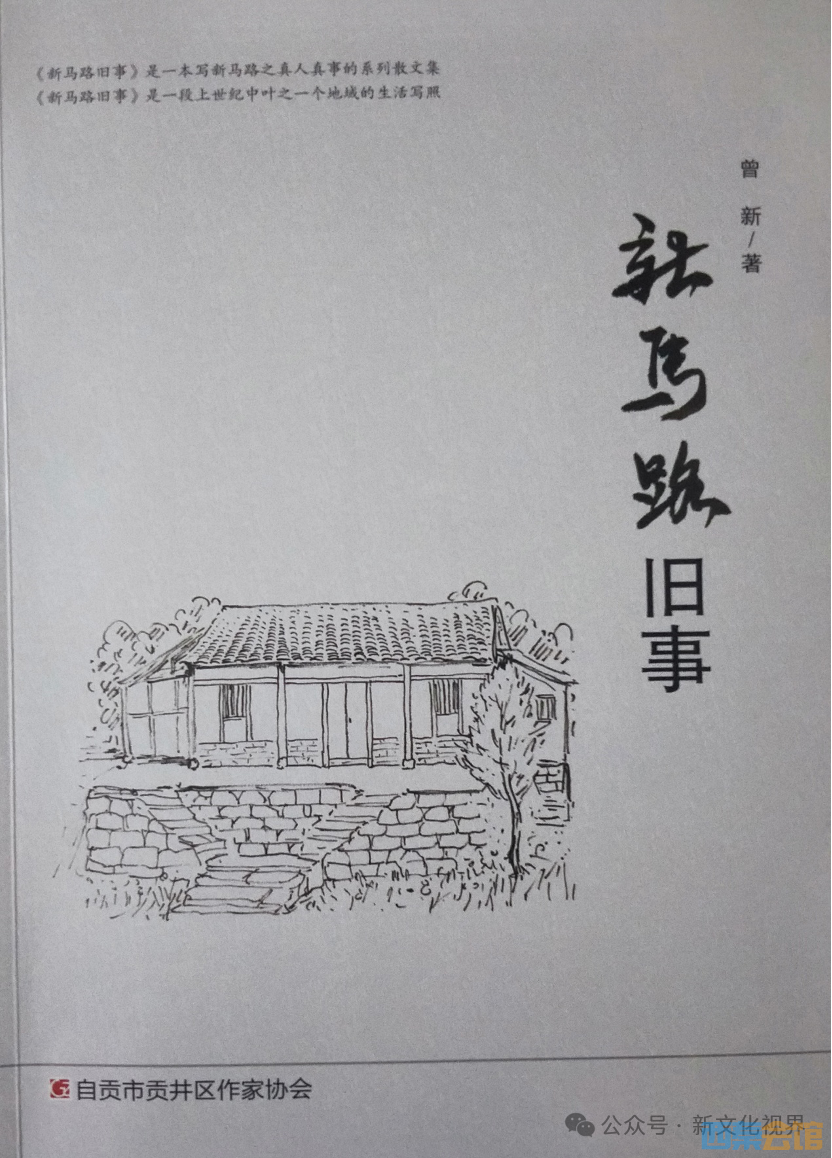 《新马路旧事》是一本写新马路之真人真事的系列散文集
《新马路旧事》是一段上世纪中叶之一个地域的生活写照
曾 新/著
新马路旧事
自贡市贡井区作家协会
公众号·新文化视界
西秦会馆